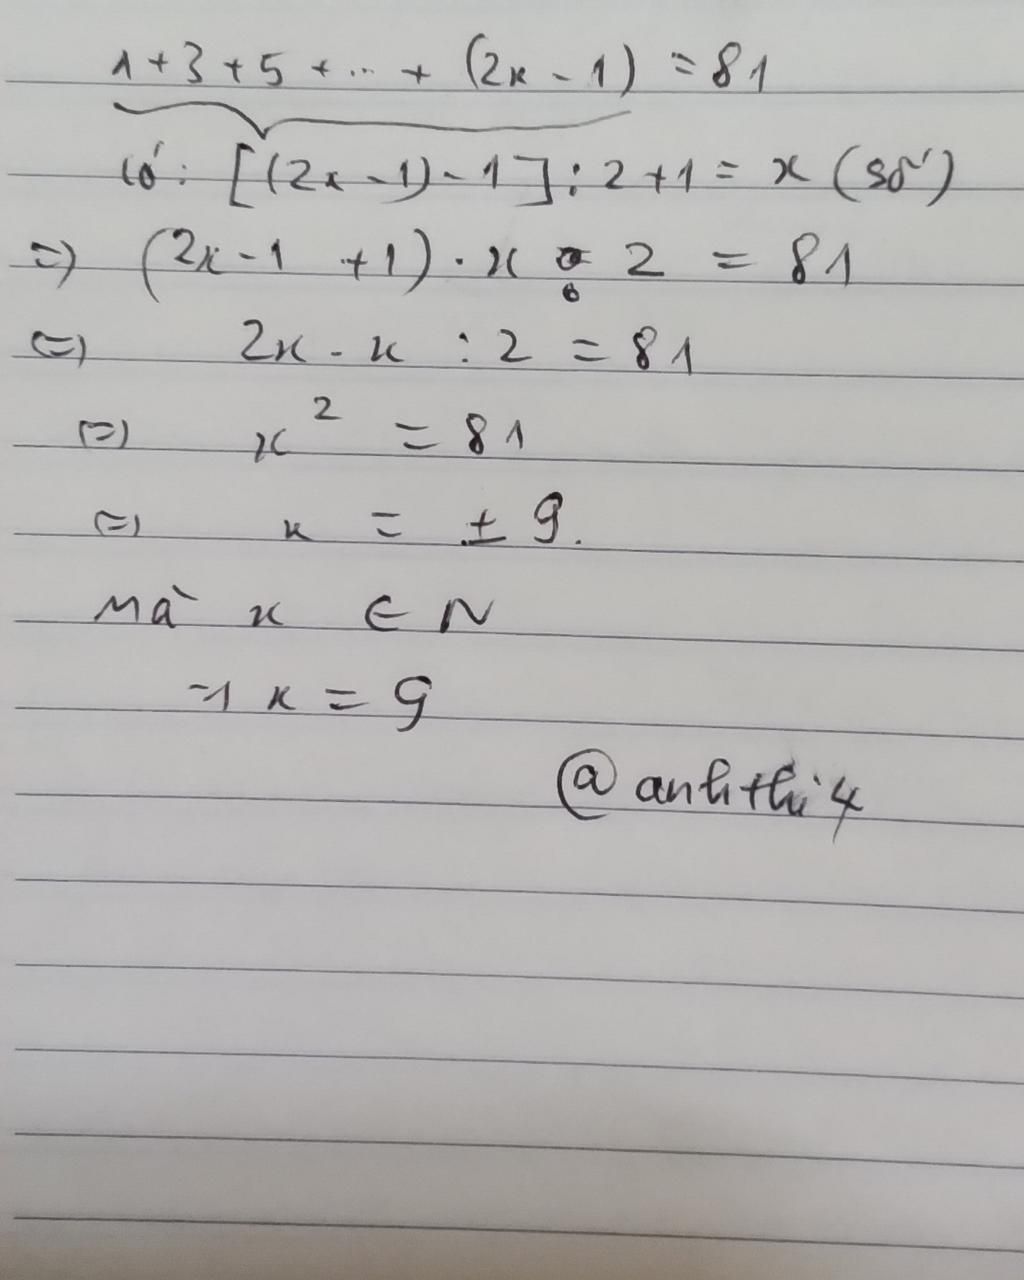 1 + 3 + 5 + ... + (2x - 1) = 81
Có: [(2x - 1) - 1] : 2 + 1 = x (số)
=) (2x - 1 + 1) . x : 2 = 81
(=) 2x . x : 2 = 81
(=) x² = 81
(=) x = ± 9.
Mà x ∈ N
=) x = 9
@anhthi4